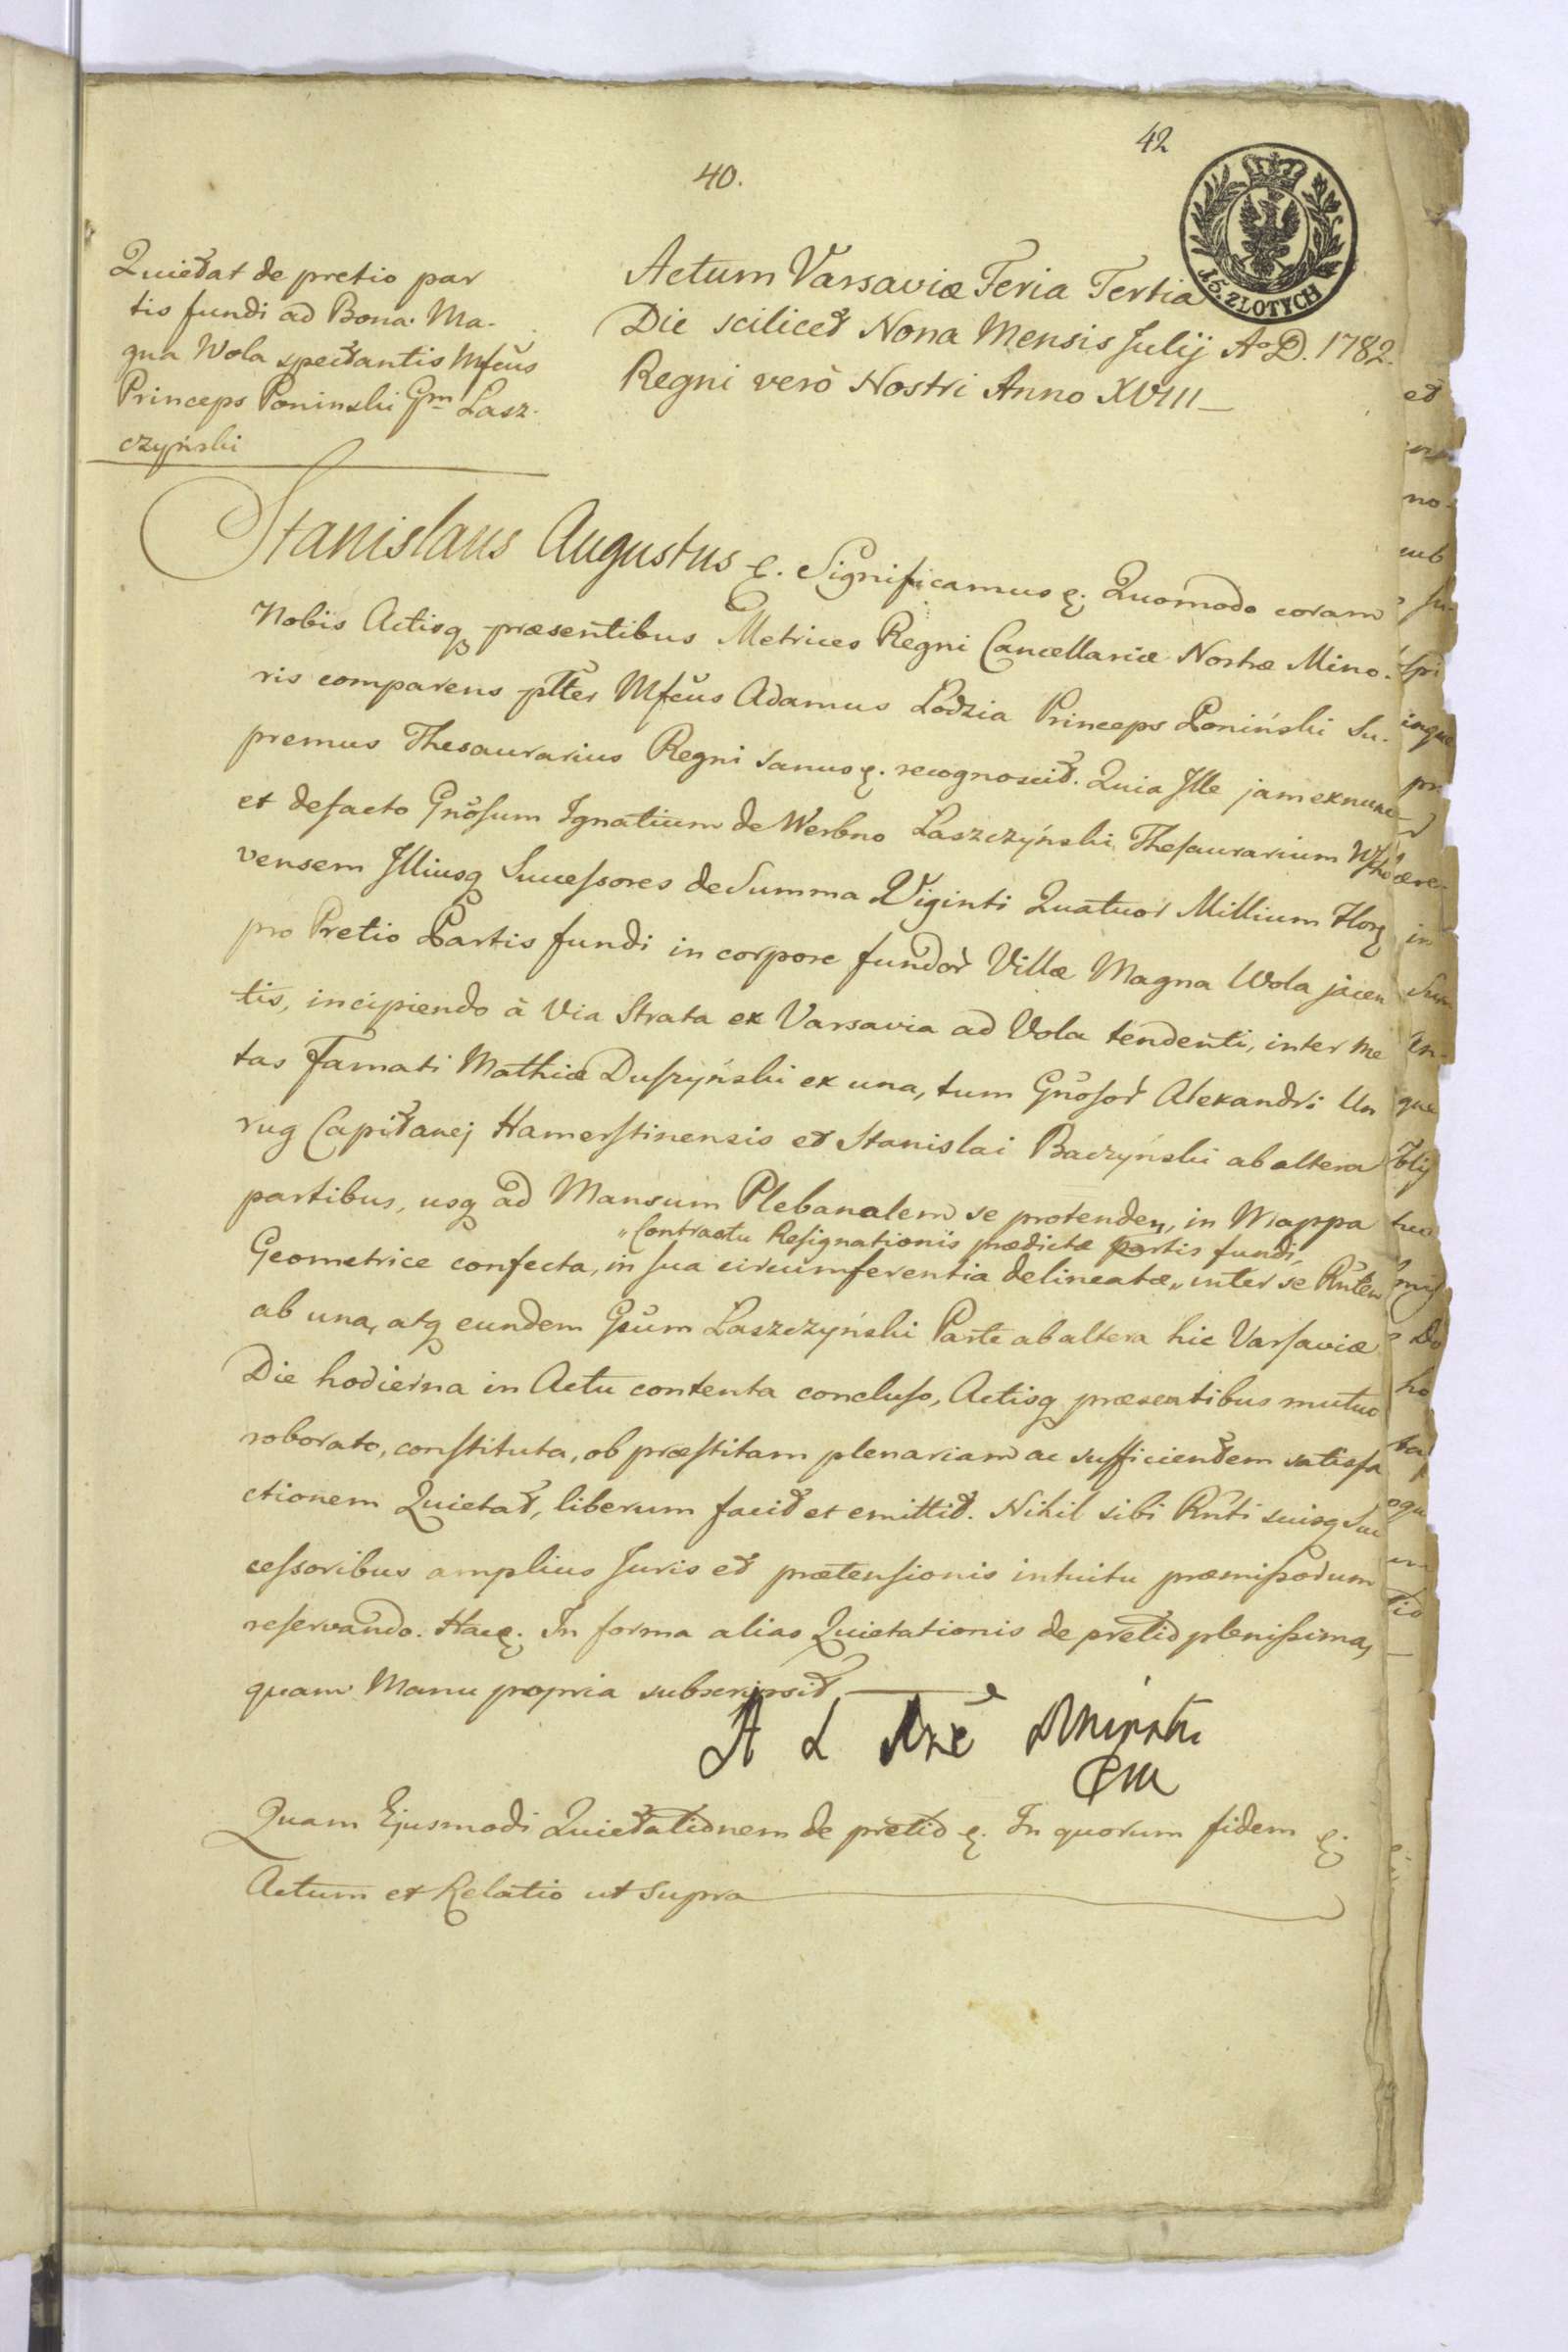 42
40.
15. ZLOTYCH
Quietat de pretio par
tis fundi ad Bona Ma-
gna Wola spectantis Mfcus
Princeps Poninski Gm Lasz-
czyński
Actum Varsaviæ Feria Tertia
Die scilicet Nona Mensis Julij Ao D. 1782.
Regni verò Nostri Anno XVIII
Stanislaus Augustus &. Significamus &. Quomodo coram
Nobis Actisq præsentibus Metrices Regni Cancellariæ Nostræ Mino-
ris comparens pltter Mfcus Adamus Lodzia Princeps Poniński Su-
premus Thesaurarius Regni sanus &. recognoscit. Quia Ille jam exnunc
et defacto Gnosum Ignatium de Werbno Laszczyński Thesaurarium Wscho
vensem Illiusq Successores de Summa Viginti Quatuor Millium Flor
pro Pretio Partis fundi in corpore fundor Villæ Magna Wola jacen
tis, incipiendo à Via Strata ex Varsavia ad Vola tendenti, inter me
tas Famati Mathiæ Duszyński ex una, tum Gnosor Alexandri Un
rug Capitanej Hamerstinensis et Stanislai Baczyński ab altera
partibus, usq ad Mansum Plebanalem se protenden, in Mappa
"Contractu Resignationis prædictæ partis fundi,
Geometrice confecta, in sua circumferentia delineatæ" inter se Rntem
ab una, atq eundem Gsum Laszczyński Parte ab altera hic Varsaviæ
Die hodierna in Actu contenta concluso, Actisq præsentibus mutuo
roborato, constituta, ob præstitam plenariam ac sufficientem satisfa
ctionem Quietat, liberum facit et emittit. Nihil sibi Rnti suisq Suc
cessoribus amplius Juris et prætensionis intuitu præmissorum
reservando. Hac &. In forma alias Quietationis de pretio plenissima,
quam Manu propria subscripsit
A L
Quam Ejusmodi Quietationem de pretio &. In quorum fidem &.
Actum et Relatio ut supra